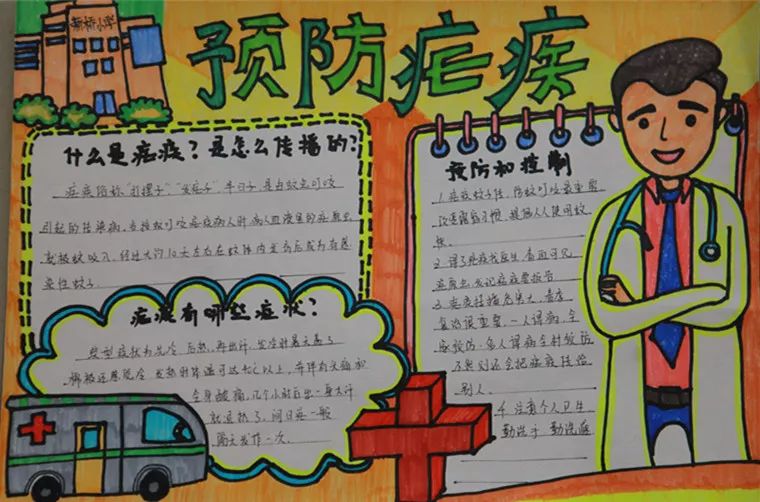 新桥小学
预防疟疾
什么是疟疾？是怎么传播的？
疟疾俗称"打摆子"、"发疟子"、半日子，是由蚊虫叮咬
引起的传染病，当按蚊叮咬疟疾病人时，病人血液里的疟原虫
就被蚊吸入，经过大约10天左右在蚊体内发育后成为有感
染性蚊子。
疟疾有哪些症状？
典型症状为先冷、后热、再出汗，发冷时盖大盖了
棉被还感觉冷，发热时体温可达40℃以上，并伴有头痛和
全身酸痛，几个小时后出一身大汗
就退热了，间日疟一般
隔天发作一次。
预防和控制
1.疟疾蚊子传，防蚊叮咬最重要
改变露宿习惯，提倡人人使用蚊
帐。
2.得了疟疾找医生，查血可见
疟原虫，
3.疟疾传播危害大，
一人得病，全
家预防；多人得病全村预防
了奥则还会把疟疾传给
别人。
4.注意个人卫生
勤洗手 勤洗澡